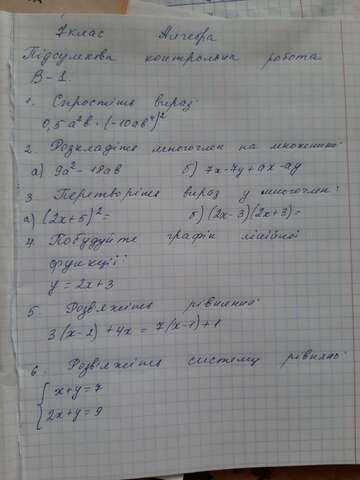 7 клас Алгебра
Підсумкова контрольна робота
В-1.
1. Спростіть вираз:
0,5a²b · (-10ab⁴)²
2. Розкладіть многочлен на множники:
а) 9a² - 18ab б) 7x-7y+ax-ay
3. Перетворіть вираз у многочлен:
а) (2x+5)² = б) (2x-3)(2x+3)=
4. Побудуйте графік лінійної
функції:
y = 2x+3
5. Розв'яжіть рівняння:
3(x-2) + 4x = 7(x-1)+1
6. Розв'яжіть систему рівнянь:
x+y=7
2x+y=9